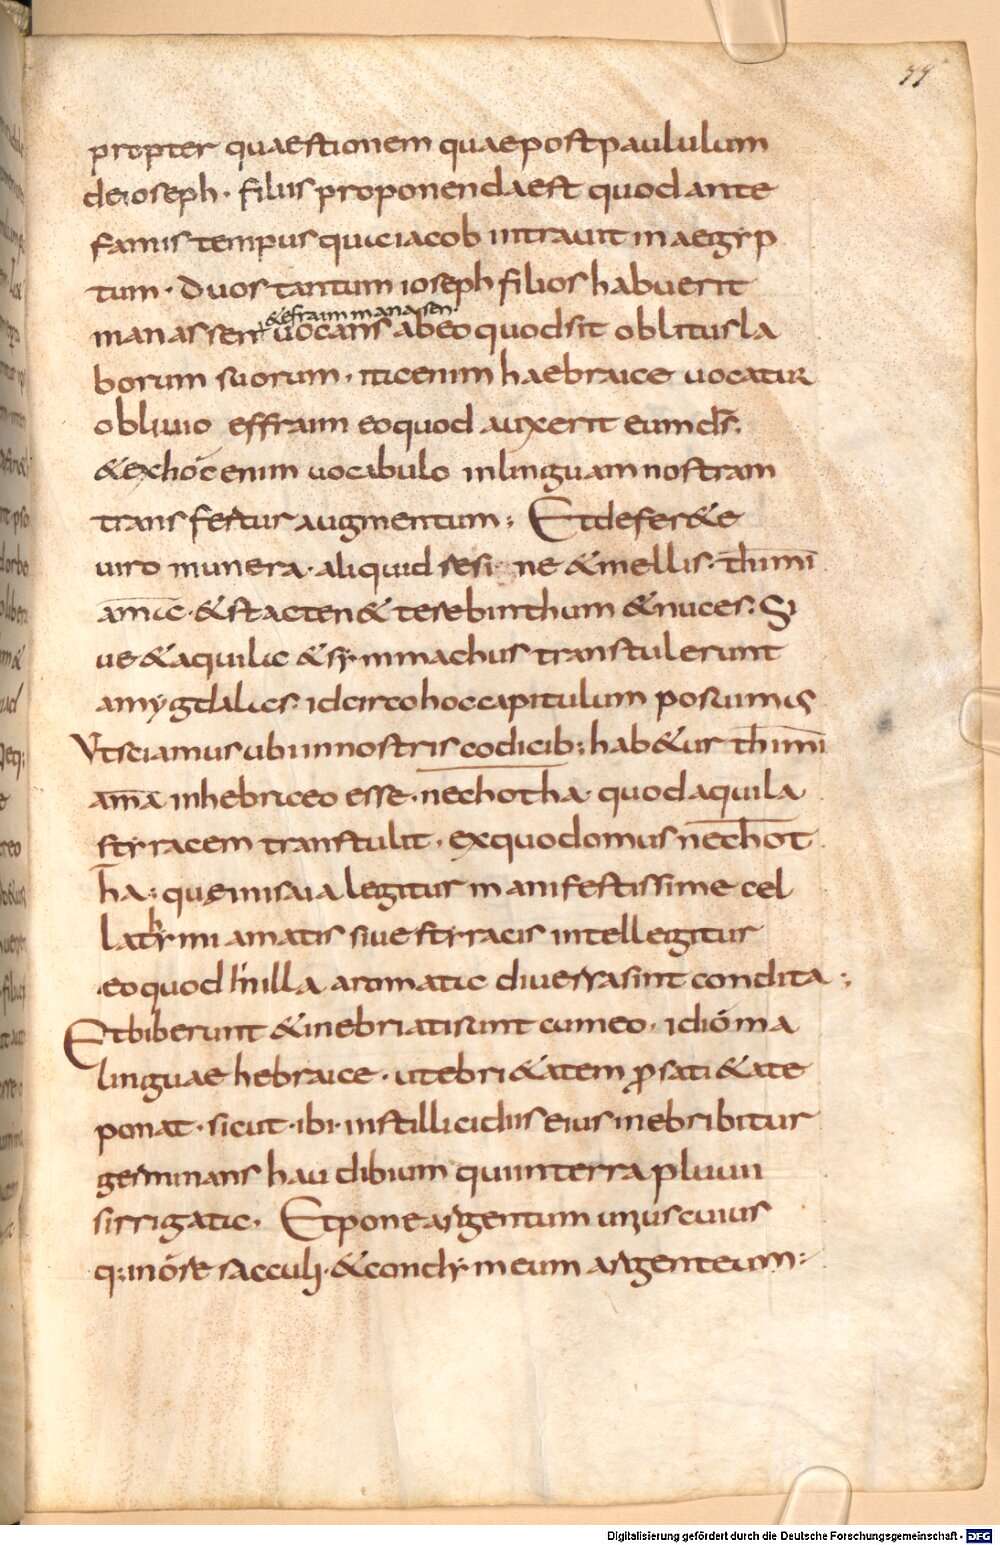 77
propter quaestionem quae post paululum
de ioseph · filiis proponenda est quod ante
famis tempus qui iacob intrauit in aegyp
tum · Duos tantum ioseph filios habuerit
& efraim manassen
manassen uocans ab eo quod sit oblitus la
borum suorum · ita enim haebraice uocatur
obliuio effraim eo quod auxerit eum ds̄.
& ex hoc enim uocabulo in linguam nostram
transfertur augmentum; Et defer&e
uiro munera · aliquid resi ne & mellis · thimi
amic · & stacten & terebinthum & nuces. Si
ue & aquila & symmachus transtulerunt
amygdalas · idcirco hoc capitulum posuimus
Vt sciamus ubi in nostris codicib; hab&ur thimi
ama in hebraeo esse · nechotha quod aquila
styracem transtulit · ex quo domus nechot
ha; quae in isaia legitur manifestissime cel
la thymiamatis siue styracis intellegitur
eo quod in illa aromatic diuersa sint condita;
Et biberunt & inebriati sunt cum eo · idióma
linguae hebraice · ut ebri&atem ꝓ sati&ate
ponat · sicut · ibi · in stillicidiis eius inebribitur
germinans hau dibium quin terra pluuii
s irrigatic · Et pone argentum unius cuius
q; in óre sacculi · & condy meum argenteum;
Digitalisierung gefördert durch die Deutsche Forschungsgemeinschaft - DFG